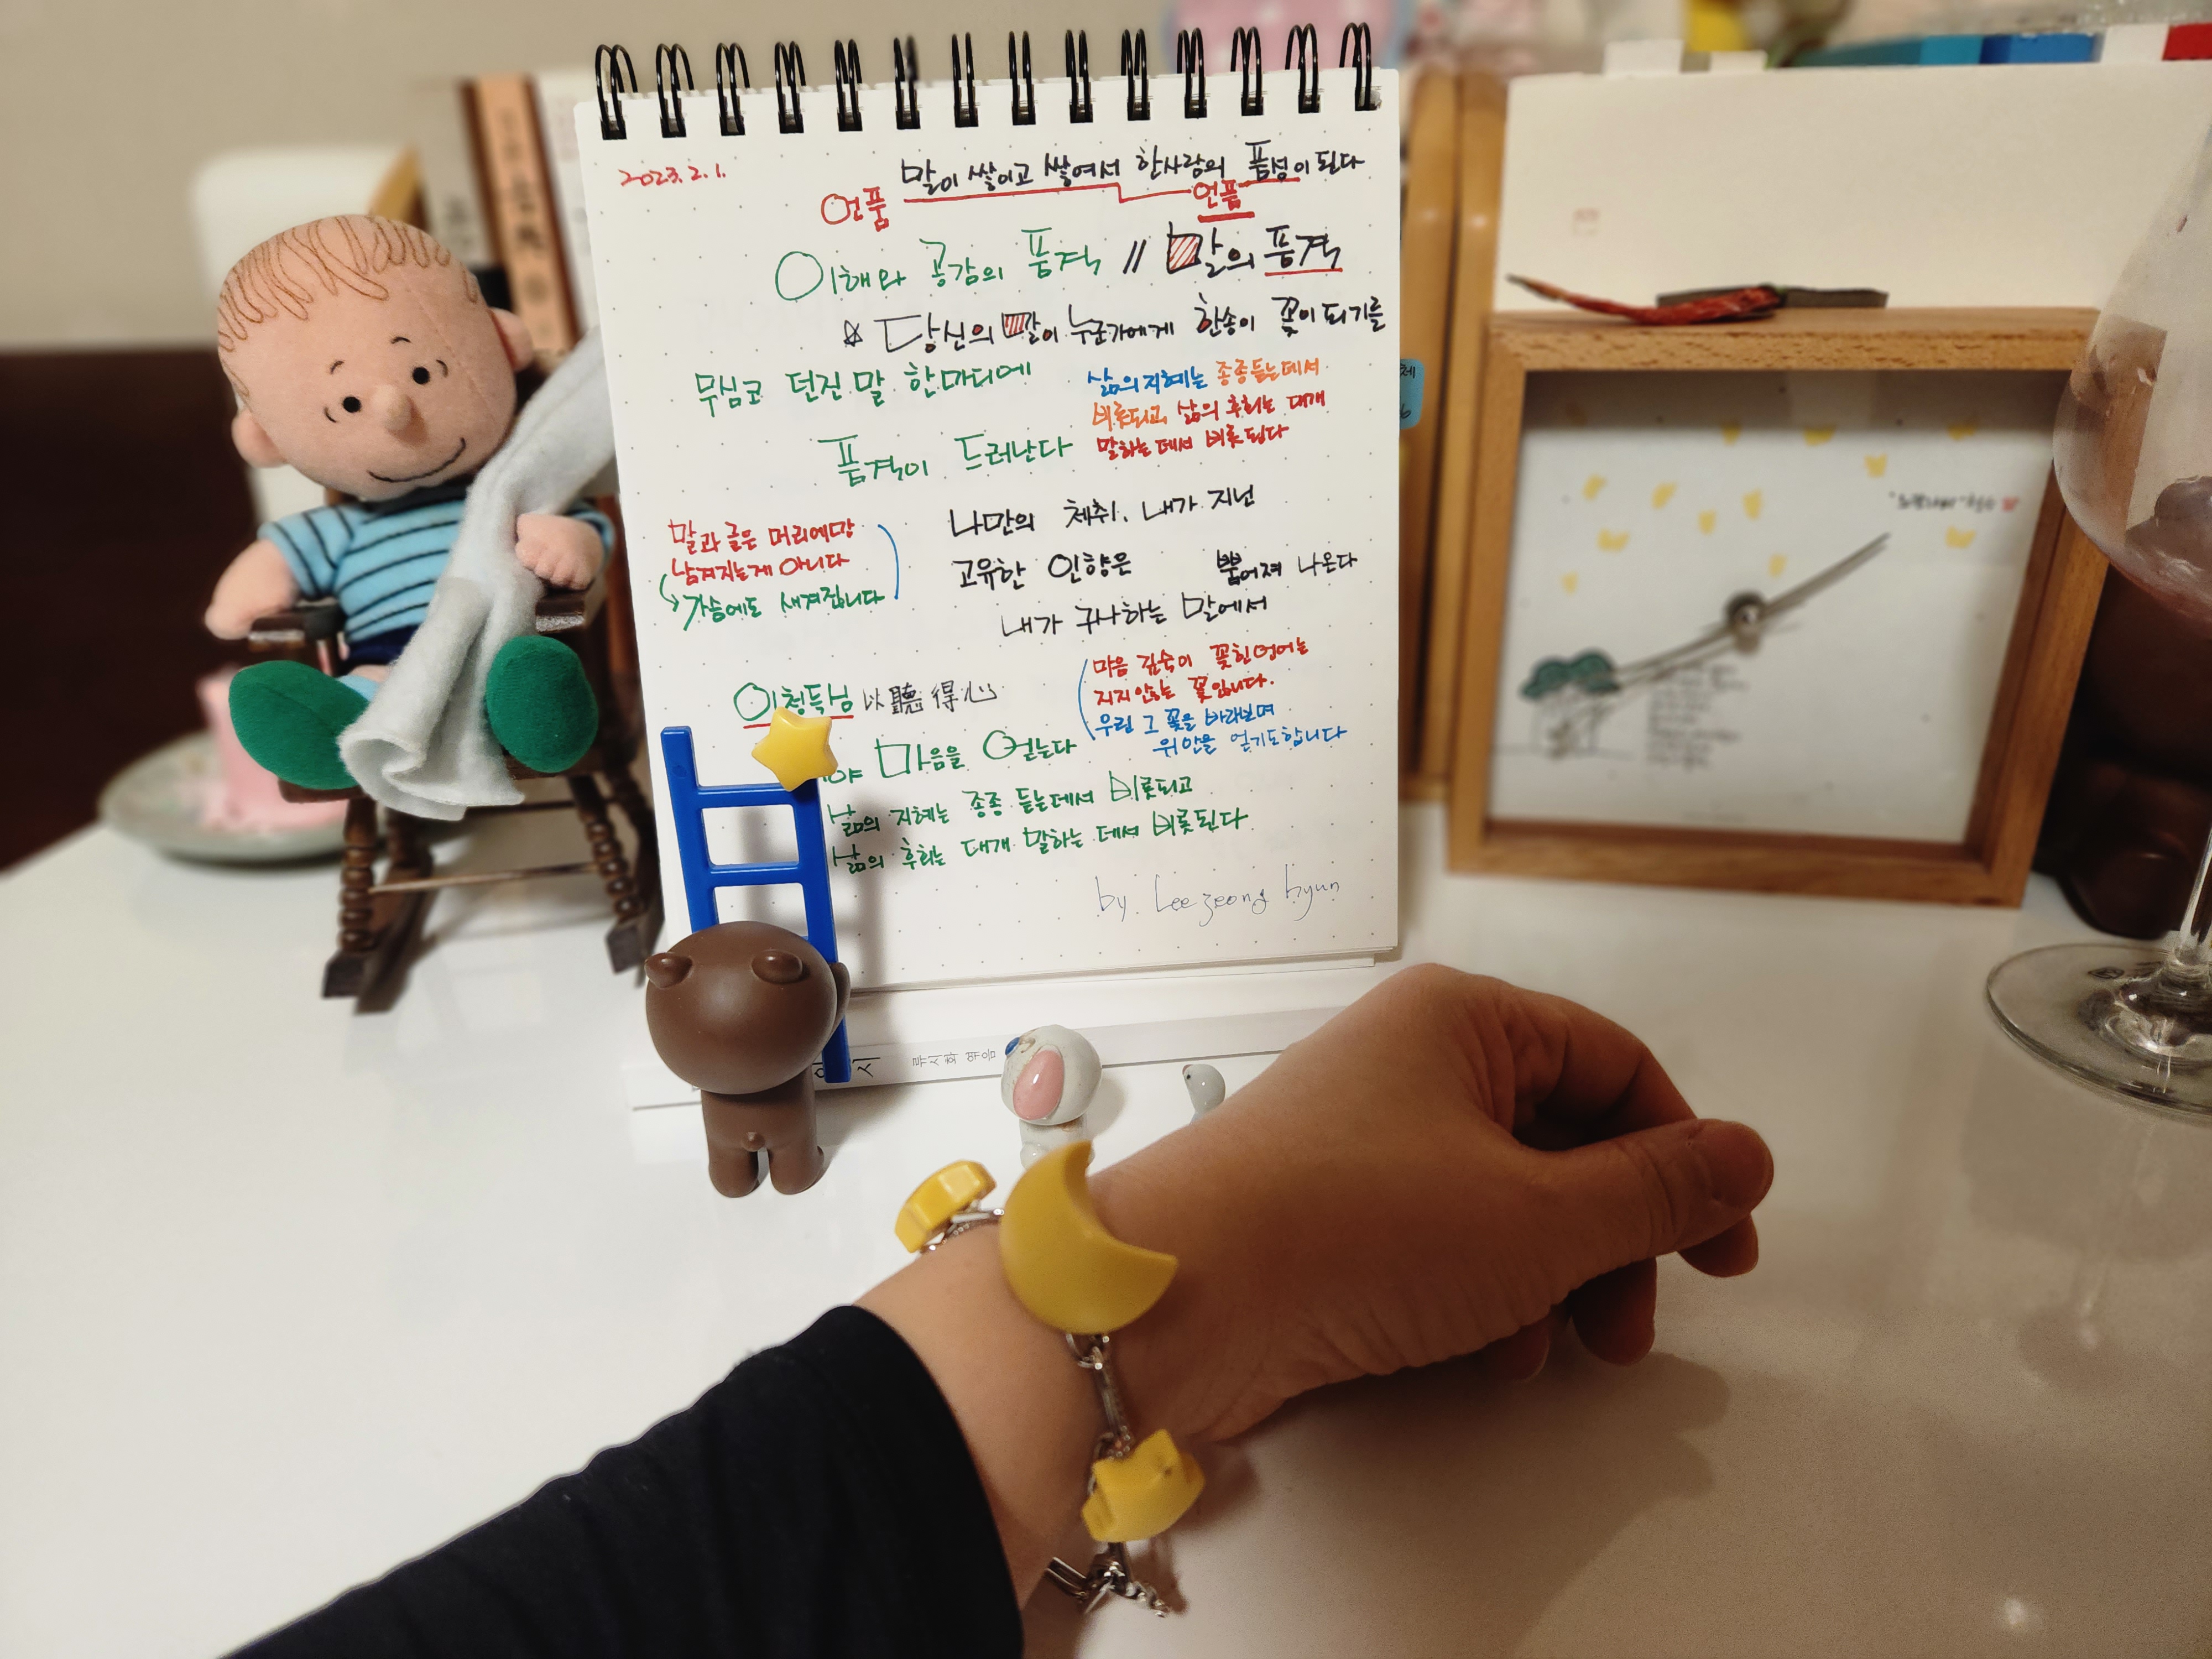 2023.2.1.
말이 쌓이고 쌓여서 한사람의 품성이 된다
언품
언품
이해와 공감의 품격 // 말의 품격
☆ 당신의 말이 누군가에게 한송이 꽃이 되기를
무심코 던진 말 한마디에
품격이 드러난다
삶의 지혜는 종종 듣는데서
비롯되고, 삶의 후회는 대개
말하는 데서 비롯된다
말과 글은 머리에만
남겨지는게 아니다
가슴에도 새겨집니다
나만의 체취, 내가 지닌
고유한 인향은 뿜어져 나온다
내가 구사하는 말에서
이청득심 以聽得心
마음 깊숙이 꽂힌 언어는
지지않는 꽃입니다.
우린 그 꽃을 바라보며
위안을 얻기도합니다
야 마음을 얻는다
삶의 지혜는 종종 듣는데서 비롯되고
삶의 후회는 대개 말하는 데서 비롯된다
by. Lee zeong hyun
시 류시화 엮음